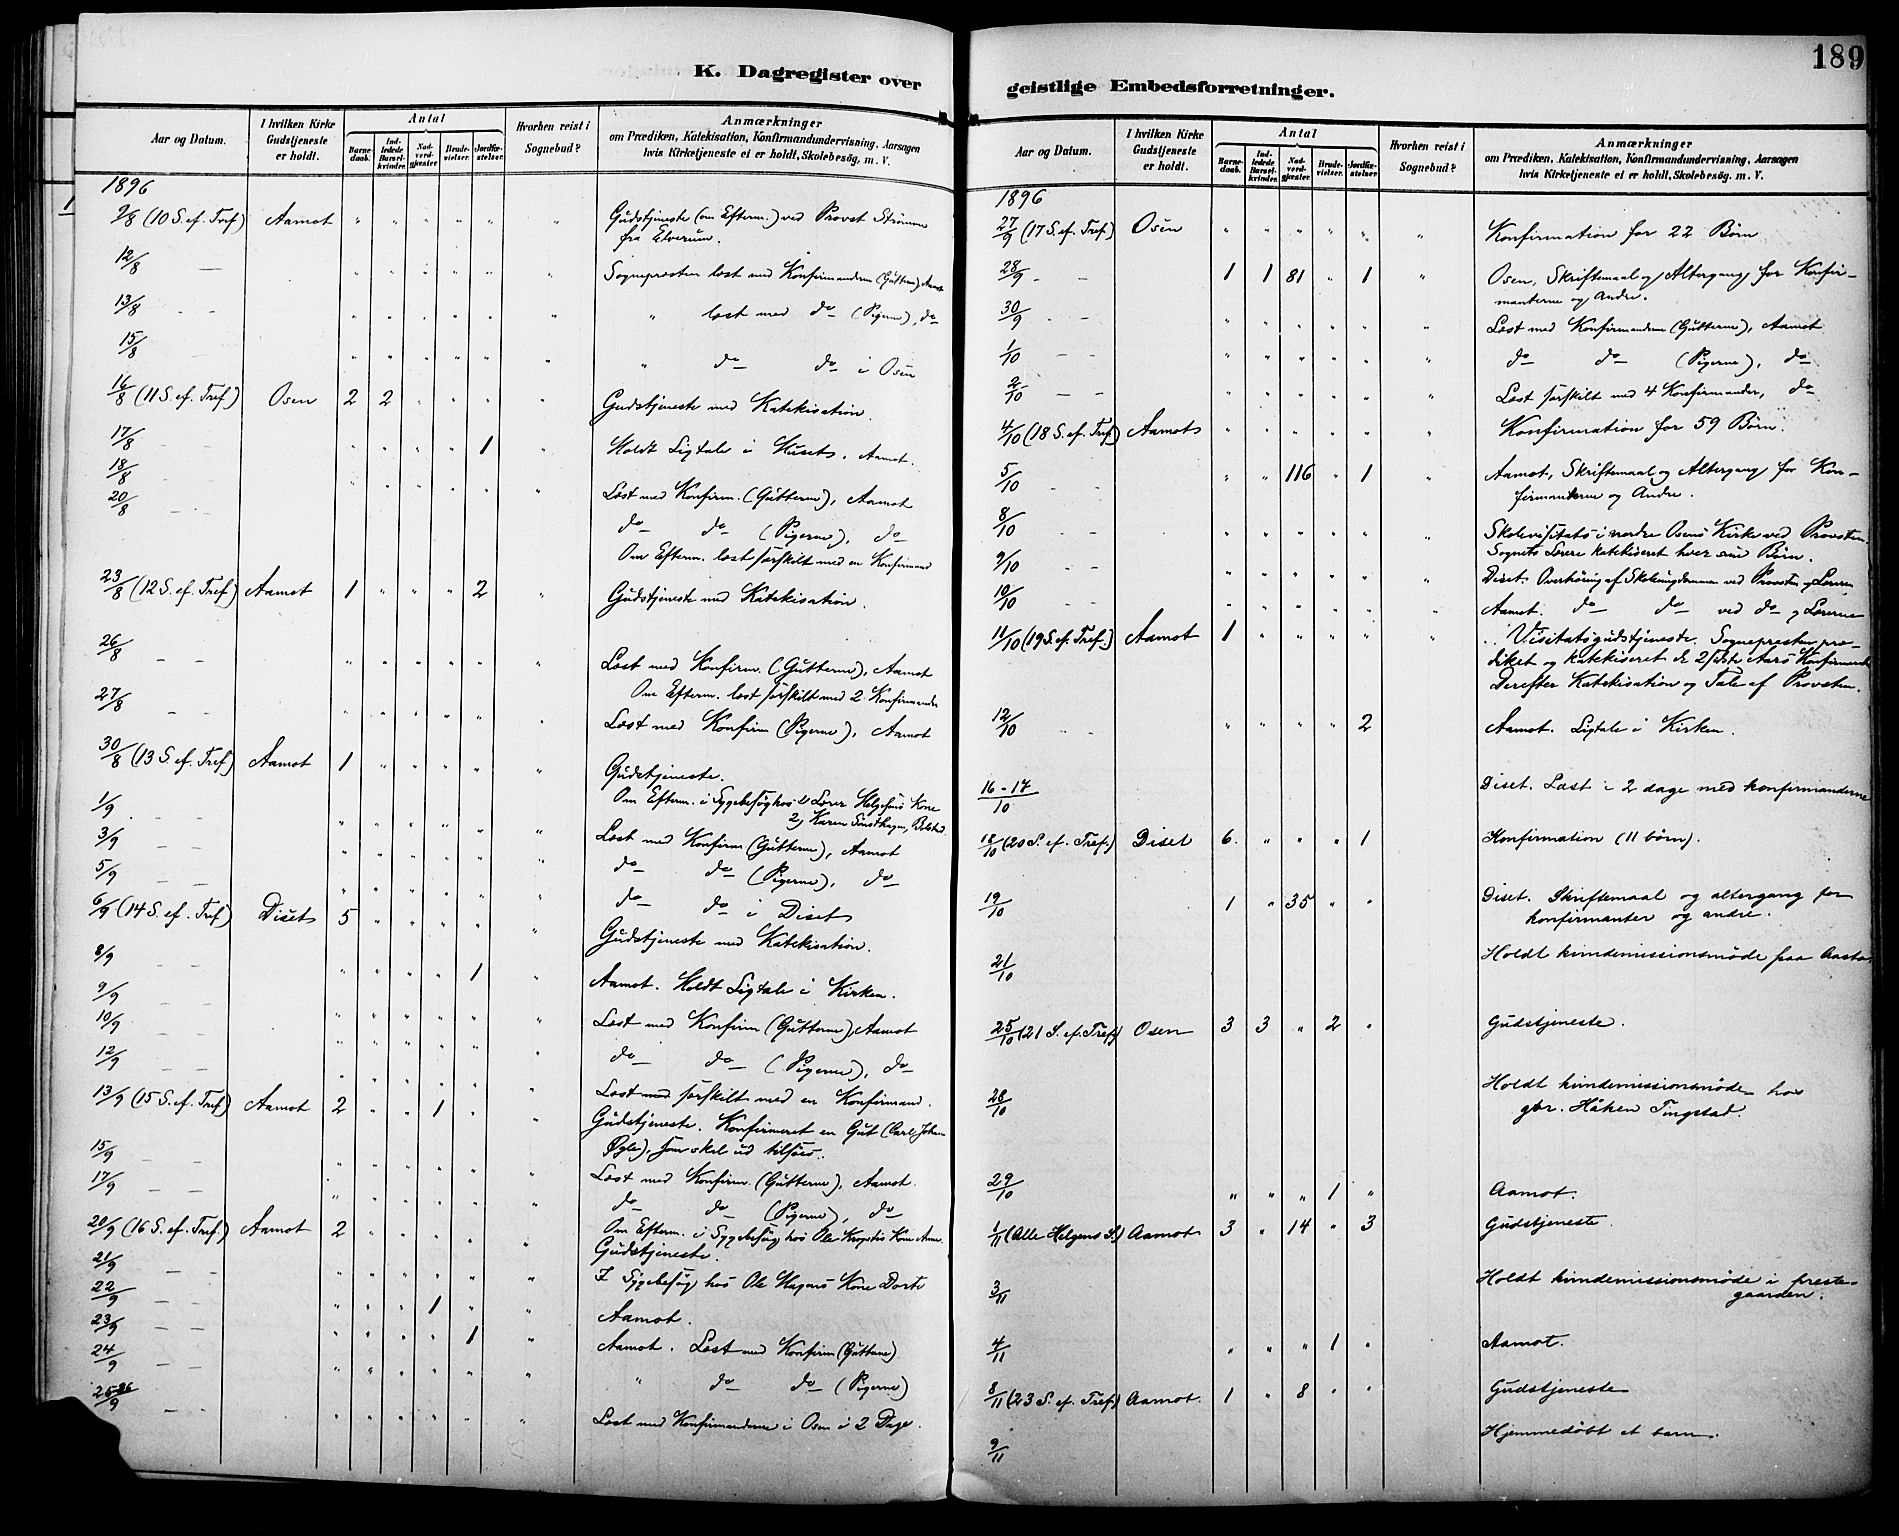 K. Dagregister over
Aar og Datum. I hvilken Kirke Gudstjeneste er holdt. Antal Barnedaab. Indledede Barselkvinder. Nadverdgjæster. Brudevielser. Jordfæstelser. Hvorhen reist i Sognebud? Anmærkninger om Prædiken, Katekisation, Konfirmandundervisning, Aarsagen hvis Kirketjeneste ei er holdt, Skolebesøg, m. V.
1896
9/8 (10 S. ef. Tref) Aamot " " " " " " Gudstjeneste (om Efterm.) ved Provst Strømme
fra Elverum.
12/8 — " " " " " " Sognepresten læst med Konfirmanderne (Gutterne), Aamot
13/8 - - " " " " " " " læst med do (Pigerne), do
15/8 " " " " " " " do do i Osen
16/8 (11 S. ef. Tref) Osen 2 2 " " " " Gudstjeneste med Katekisation.
17/8 - - " " " " 1 " Holdt Ligtale i Huset, Aamot.
18/8 - - " " " " " " Læst med Konfirm. (Gutterne), Aamot
20/8 - - do do (Pigerne), do
Om Efterm. læst særskilt med en Konfirmand
23/8 (12 S. ef. Tref) Aamot 1 " " " 2 " Gudstjeneste med Katekisation.
26/8 - - " " " " " " Læst med Konfirm. (Gutterne), Aamot
Om Efterm. læst særskilt med 2 Konfirmander
27/8 - - " " " " " " Læst med Konfirm (Pigerne), Aamot
30/8 (13 S. ef. Tref) Aamot 1 " " " " " Gudstjeneste.
1/9 - - " " " " " " Om Efterm. i Sygebesøg hos 1) Lærer Kone
2) Karen
3/9 - - " " " " " " Læst med Konfirm (Gutterne), Aamot
5/9 - - " " " " " do do (Pigerne), do
do do i Diset
6/9 (14 S. ef. Tref) Diset 5 " " " " " Gudstjeneste med Katekisation.
8/9 - - " " " " 1 " Aamot. Holdt Ligtale i Kirken.
9/9 - - " " " " " " Læst med Konfirm (Gutterne), Aamot
10/9 - - " " " " " " do do (Pigerne), do
12/9 - - " " " " " " Læst med særskilt med en Konfirmand.
13/9 (15 S. ef. Tref) Aamot 2 " " 1 " " Gudstjeneste. Konfirmeret en Gut (Carl Johan
), som skal ud tilsøes.
15/9 - - " " " " " " Læst med Konfirm. (Gutterne), Aamot.
17/9 - - " " " " " " do do (Pigerne), do
Om Efterm. i Sygebesøg hos Ole Kone
20/9 (16 S. ef. Tref.) Aamot 2 " " " " " Gudstjeneste.
21/9 - - " " " " " " I Sygebesøg hos Ole Hagens Kone Dorte
22/9 - - " " " 1 " " Aamot.
23/9 - - " " " " 1 " Aamot. Læst med Konfirm (Gutterne)
24/9 - - " " " " " " " do do (Pigerne)
25-26/9 - - " " " " " " Læst med Konfirmanderne i Osen i 2 Dage.
189
geistlige Embedsforretninger.
Aar og Datum. I hvilken Kirke Gudstjeneste er holdt. Antal Barnedaab. Indledede Barselkvinder. Nadverdgjæster. Brudevielser. Jordfæstelser. Hvorhen reist i Sognebud? Anmærkninger om Prædiken, Katekisation, Konfirmandundervisning, Aarsagen hvis Kirketjeneste ei er holdt, Skolebesøg, m. V.
1896
27/9 (17 S. ef. Tref) Osen " " " " " " Konfirmation for 22 Børn
28/9 - - 1 1 81 " 1 " Osen, Skriftemaal og Altergang for Konfir-
manterne og Andre.
30/9 - - " " " " " " Læst med Konfirmanderne (Gutterne), Aamot
1/10 - - " " " " " " do do (Pigerne), do
2/10 - - " " " " " " Læst særskilt med 4 Konfirmander, do
4/10 (18 S. ef. Tref) Aamot " " " " " " Konfirmation for 59 Børn.
5/10 - - " " 116 " 1 " Aamot, Skriftemaal og Altergang for Kon-
firmanterne og Andre.
8/10 - - " " " " " " Skolevisitats i nordre Osens Kirke ved Provsten.
Sognets Lærere katekiseret hver sine Børn.
9/10 - - " " " " " " Diset. Overhøring af Skoleungdommen ved Provsten og Læreren
10/10 - - " " " " " " Aamot. do do ved do og Lærerne
11/10 (19 S. ef. Tref.) Aamot 1 " " " " " Visitatsgudstjeneste. Sognepresten præ-
diket og katekiseret de 2 sidste Aars Konfirmander
Derefter Katekisation og Tale af Provsten.
12/10 - - " " " " 2 Aamot. Ligtale i Kirken.
16-17/10 Diset. Læst i 2 dage med konfirmanderne
18/10 (20 S. ef. Tref.) Diset 6. " " " 1 Konfirmation (11 børn).
19/10 1 " 35 " " Diset. Skriftemaal og altergang for
konfirmanter og andre.
21/10 Holdt kvindemissionsmøde paa Aasta.
25/10 (21 S. ef. Tref) Osen 3 3 " 2 " Gudstjeneste.
28/10 Holdt kvindemissionsmøde hos
gbr. Håken Tingstad.
29/10 " " " 1 " Aamot.
1/11 (Alle Helgens S.) Aamot 3 " 14 " 3 Gudstjeneste.
3/11 Holdt kvindemissionsmøde i preste-
gaarden.
4/11 " " " 1 " Aamot.
8/11 (23 S. ef. Tref.) Aamot. 1 " 8 " " Gudstjeneste
9/11 Hjemmedøbt et barn.